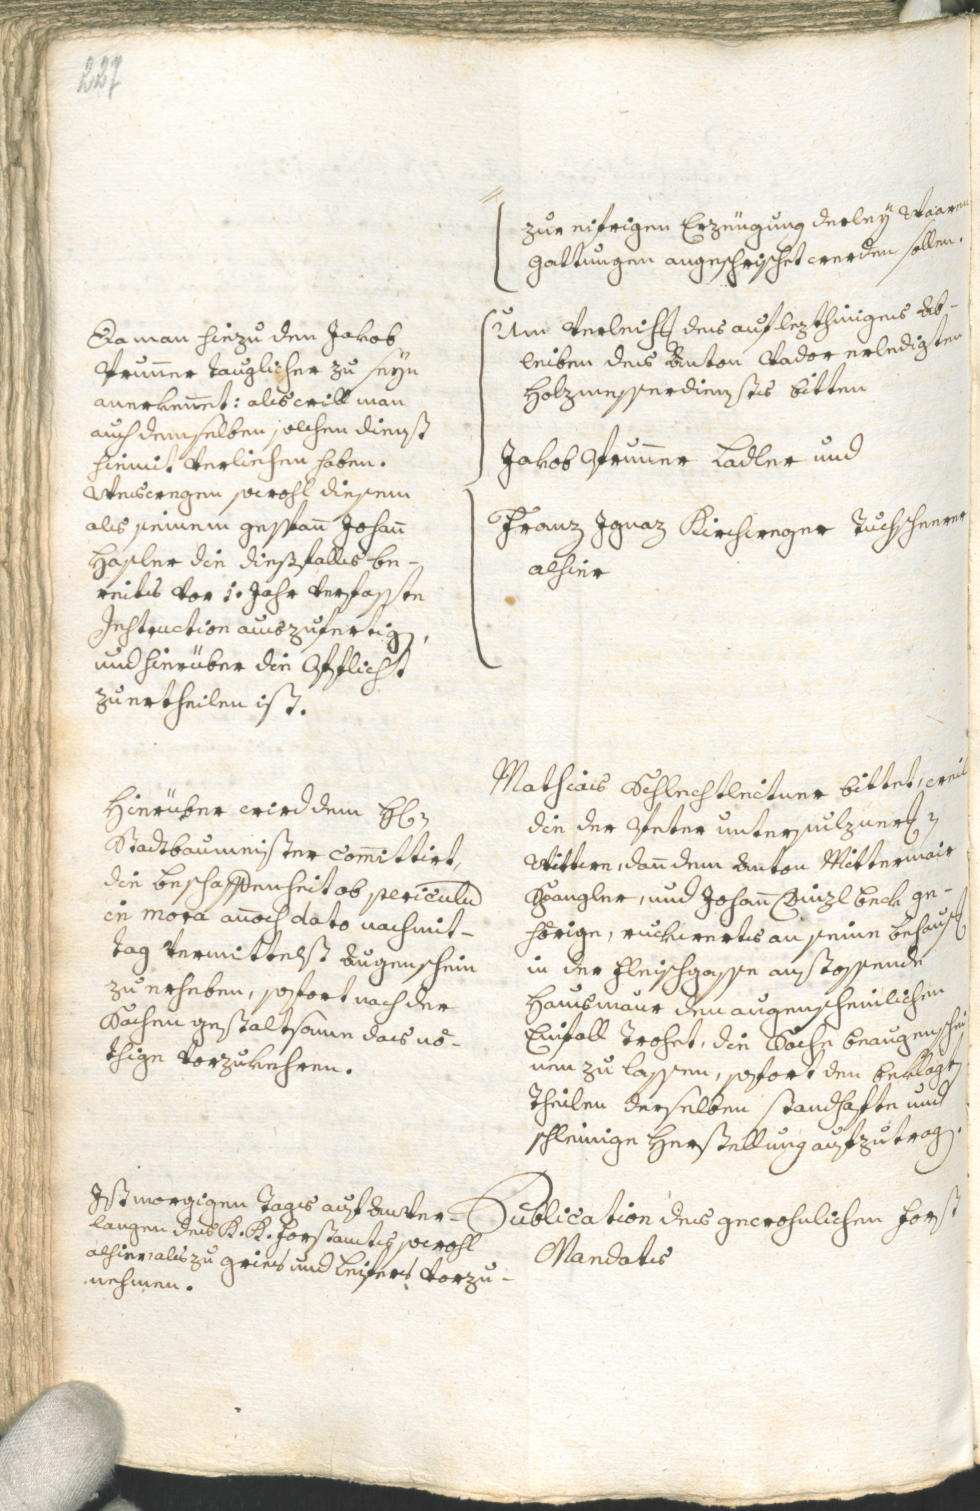 227
zur eifrigen Erzeugung derley Waaren
Gattungen angefrischet werden sollen.
Da man hiezu den Jakob
Prunner tauglicher zu seyn
anerkennet: als will man
auch demselben solchen dienst
hiemit verliehen haben.
Weswegen sowohl diesem
als seinem gespann Johann
Hasler die diesfalls be-
reits vor 1. Jahr verfasste
Instruction auszufertigen,
und hierüber die Pflicht
zu ertheilen ist.
Um Verleihung des auf lezthiniges Ab-
leiben des Anton Vador erledigten
Holzmesserdienstes bitten
Jakob Prunner Ladler und
Franz Ignaz Kirchweger Tuchscheerer
alhier
Hierüber wird dem
Stadtbaumeister committirt,
die beschaffenheit ob periculum
in mora annoch dato nachmit-
tag vermittelst Augenschein
zu erheben, sofort nach der
Sachen gestaltsame das nö-
thige vorzukehren.
Mathias Schlechtleitner bittet, weil
die der Peter untersulznerischen
Wittwe, dann dem Anton Mittermair
Spangler, und Johann Beck ge-
hörige, ruckwerts an seine Behausung
in der Fleischgasse anstossende
Hausmaur den augenscheinlichen
Einfall drohet, die Sache beaugenschei
nen zu lassen, sofort den beklagten
Theilen derselben standhafte und
schleinige Herstellung aufzutragen.
Ist morgigen Tags auf Anver-
langen des K. K. Forstamtes sowohl
alhier, als zu Gries und Leifers vorzu-
nehmen.
Publication des gewohnlichen Forst
Mandats